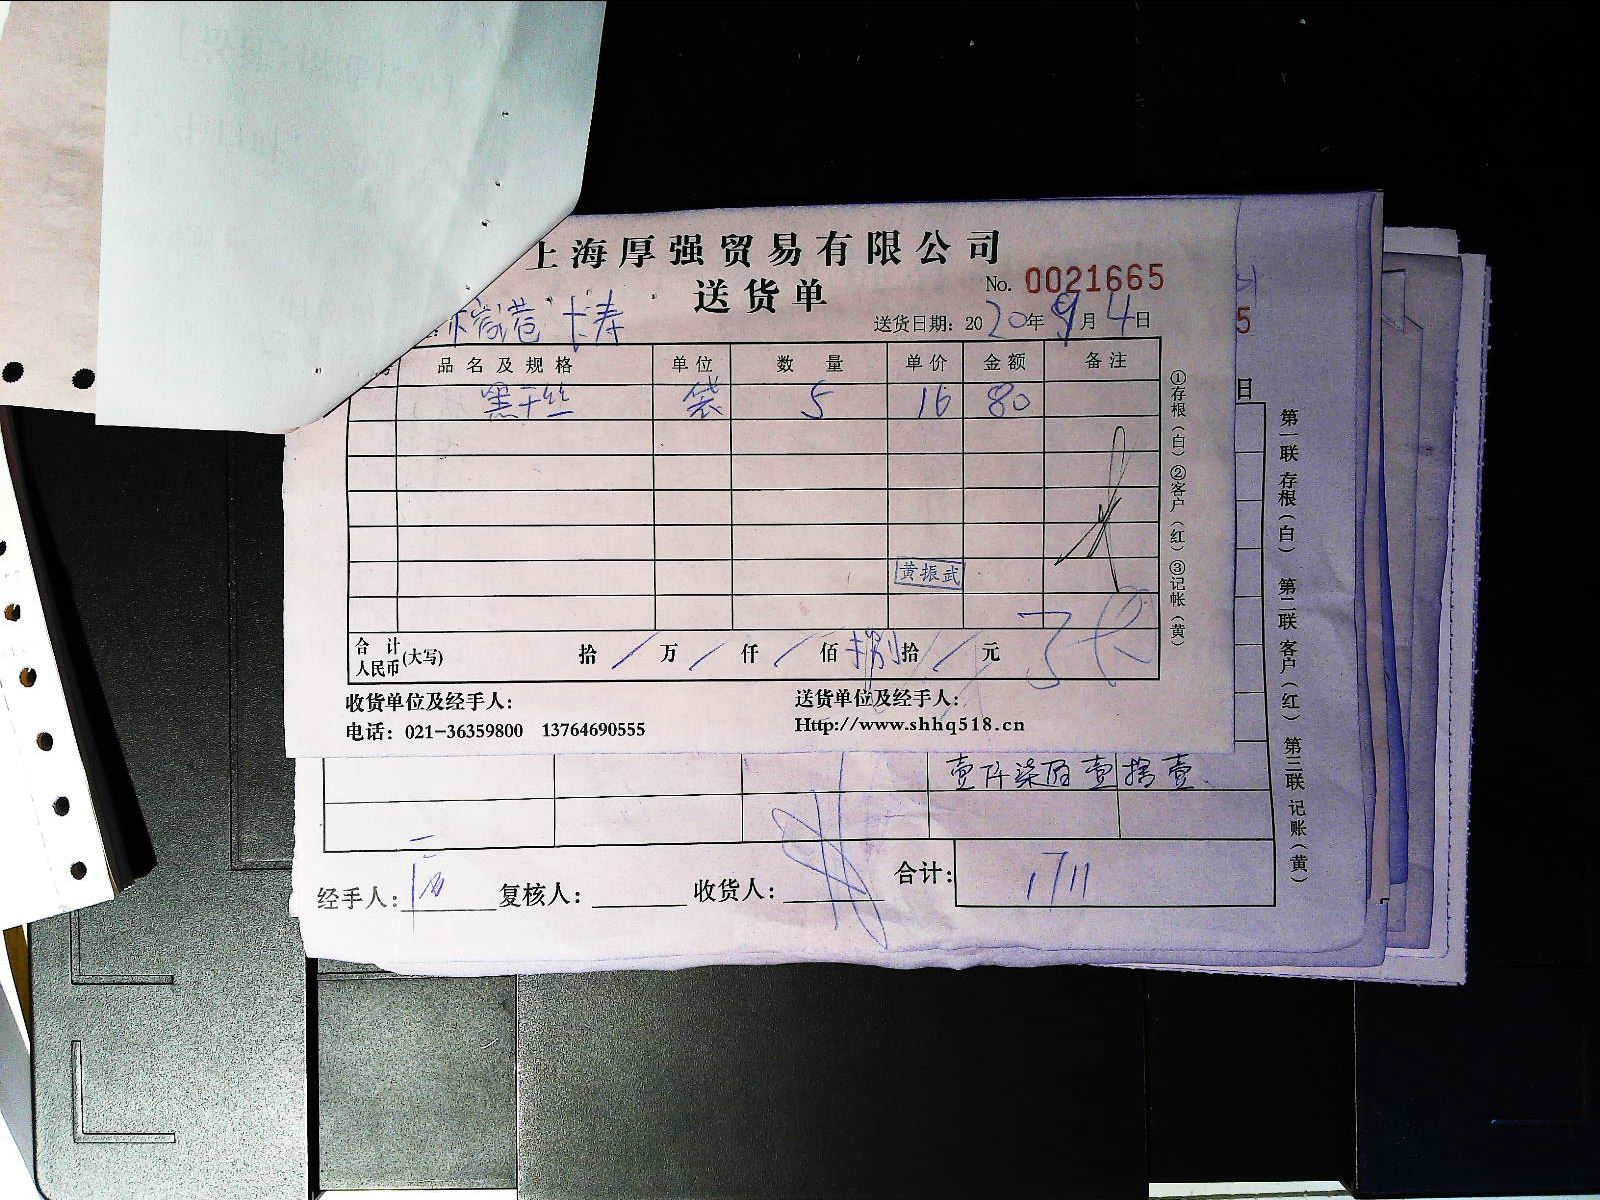 上海厚强贸易有限公司
送货单
No. 0021665
送货日期: 2020年9月4日
品名及规格 单位 数量 单价 金额 备注
黑干丝 袋 5 16 80
黄振武
合计人民币(大写) 拾/万/仟/佰捌拾/元
收货单位及经手人:
送货单位及经手人:
电话: 021-36359800 13764690555
Http://www.shhq518.cn
①存根(白)②客户(红)③记帐(黄)
5
日
壹仟柒佰壹拾壹
经手人: 复核人: 收货人: 合计: 1711
第一联 存根(白) 第二联 客户(红) 第三联 记账(黄)